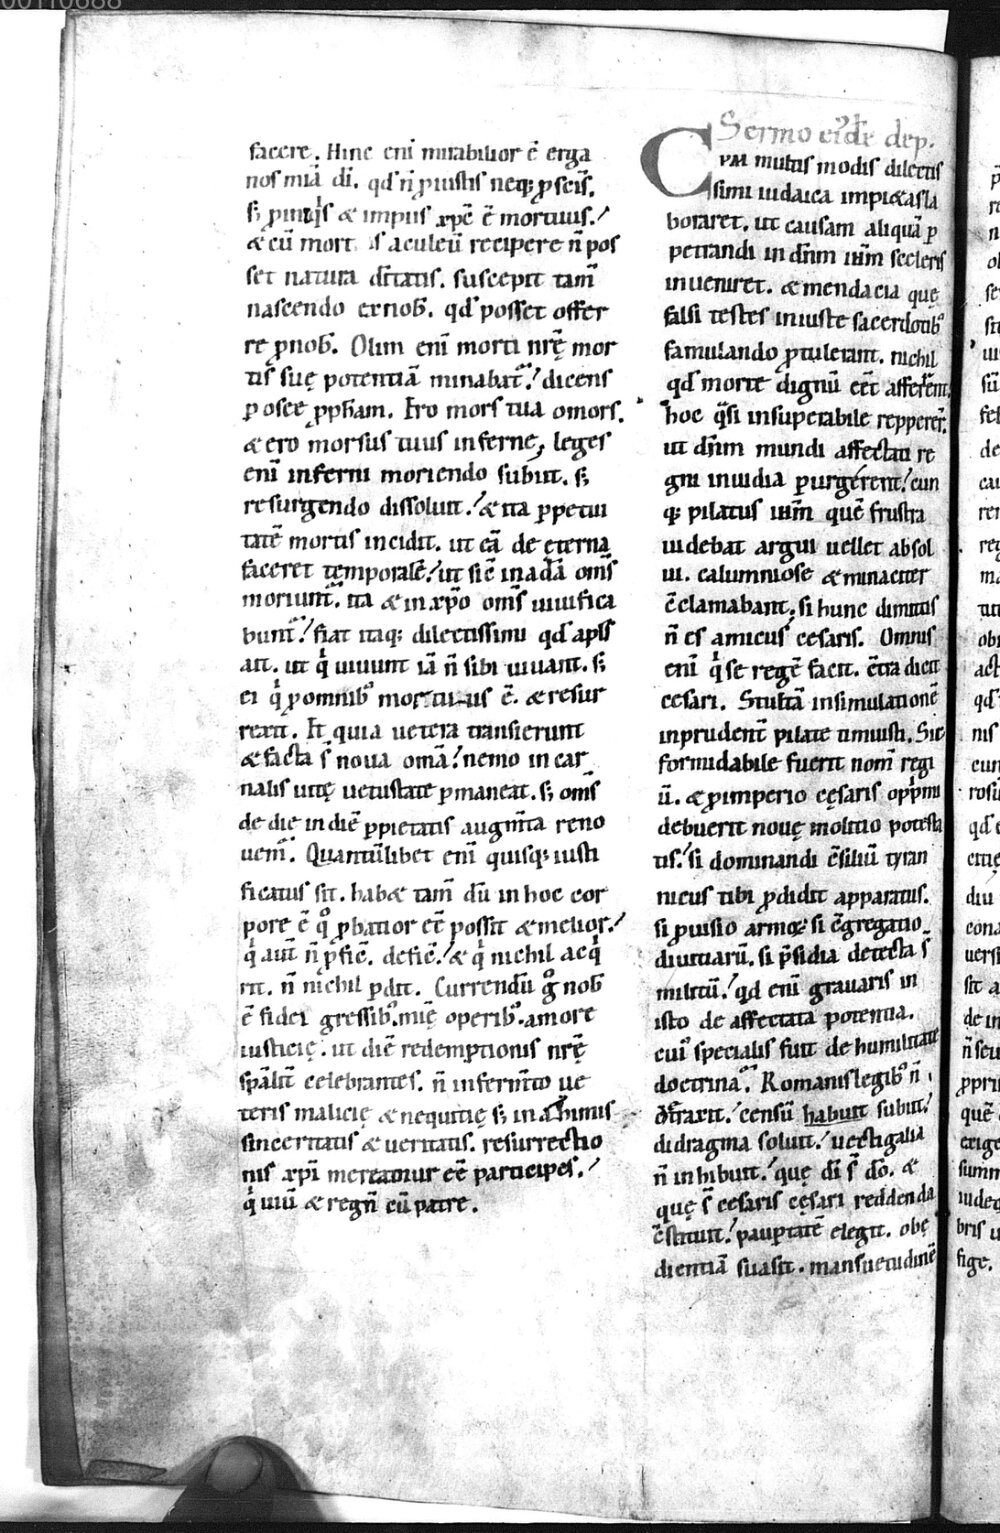 facere. Hinc eni mirabilior ē erga
nos mīa di. qd' n̄ p iustis neq; p scīs.
s; p iniq̄s & impiis xp̄c ē mortuus./
& cū mort is aculeū recipere n̄ pos
set natura dr̄tatis. suscepit tam̄
nascendo ex nob̄. qd' posset offer
re p nob̄. Olim eni morti nrę̄ mor
tis suę potentiā minabat̄./ dicens
p osee pph̄am. Ero mors tua o mors.
& ero morsus tuus inferne, leges
eni inferni moriendo subiit. s;
resurgendo dissoluit./ & ita ppetui
tatē mortis incidit. ut eā de ęterna
faceret temporalē./ ut sic̄ in adā om̄s
moriunt̄. ita & in xp̄o om̄s uiuifica
bunt̄./ fiat itaq; dilectissimi qd' apl̄s
ait. ut q̄ uiuunt iā n̄ sibi uiuant. s;
ei q̄ p omnib; mortuus ē. & resur
rexit. Et quia uetera transierunt
& facta s̄ noua omā./ nemo in car
nalis uitę uetustate pmaneat. s; om̄s
de die in diē p pietatis augm̄ta reno
uem̄. Quantūlibet eni quisq; iusti
ficatus sit. hab& tam̄ dū in hoc cor
pore ē q̊ pbatior eē possit & melior./
q̄ aut̄ n̄ pfic̄. defic̄./ & q̄ nichil acq̄
rit. n̄ nichil pdit. Currendū g̊ nob̄
ē fidei gressib;. mię operib;. amore
iusticię. ut diē redemptionis nrę̄
spālit̄ celebrantes. n̄ in ferm̄to ue
teris malicię & nequitię s; in azimis
sinceritatis & ueritatis. resurrectio
nis xp̄i mereamur eē participes./
q̄ uiū & regn̄ cū patre.
Sermo eide dep.
CVM multis modis dilectis
simi iudaica impi&as la
boraret. ut causam aliquā p
petrandi in dn̄m ihm̄ sceleris
inueniret. & mendacia quę
falsi testes iniuste sacerdotib;
famulando ptulerant. nichil
qd' morte dignū eēt afferrent,
hoc q̄si insuperabile repperer̄.
ut dn̄m mundi affectati re
gni inuidia purgerent./ cun
q; pilatus ihm̄ quē frustra
uidebat argui uellet absol
ui. calumniose & minaciter
c̄clamabant. si hunc dimittis
n̄ es amicus cesaris. Omnis
eni q̄ se regē facit. c̄tra dicit
cesari. Stultā insimulationē
inprudent̄ pilate timuisti. Sic
formidabile fuerit nom̄ regi
ū. & p imperio cęsaris opp̄mi
debuerit nouę molitio potesta
tis./ si dominandi c̄siliū tyran
nicus tibi pdidit apparatus.
si puisio armoꝝ. si c̄gregatio
diuitiarū. si p̄sidia detecta s̄
militū./ qd eni grauaris in
isto de affectata potentia.
cui' specialis fuit de humilitate
doctrina. Romanis legib; n̄
dt̄raxit./ censū habuit subiit./
didragma soluit./ uectigalia
n̄ inhibuit./ quę di s̄ dō. &
quę s̄ cesaris cęsari reddenda
c̄stituit./ paupertatē elegit. obę
dientiā suasit. mansuetudinē